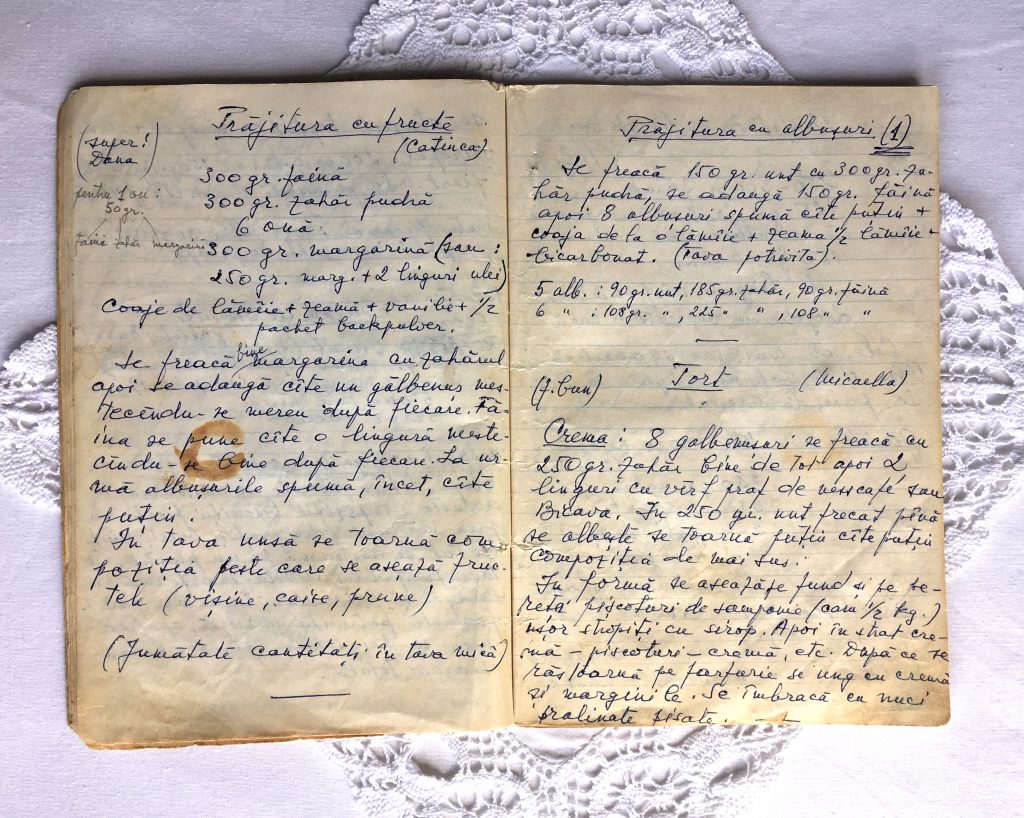 Prăjitura cu fructe
(Catinca)
(super!
Dana)
pentru 1 ou:
50 gr.
faină zahăr margarină
300 gr. faină
300 gr. zahăr pudră
6 ouă
300 gr. margarină (sau:
250 gr. marg. + 2 linguri ulei)
Coaje de lămîie + zeamă + vanilie + 1/2
pachet backpulver.
Se freacă bine margarina cu zahărul
apoi se adaugă cîte un gălbenuș mes-
tecîndu-se mereu după fiecare. Fă-
ina se pune cîte o lingură meste-
cîndu-se bine după fiecare. La ur-
mă albușurile spumă, încet, cîte
puțin.
În tava unsă se toarnă com-
poziția peste care se așează fruc-
tele (vișine, caise, prune)
(Jumătate cantități în tava mică)
Prăjitura cu albușuri (1)
Se freacă 150 gr. unt cu 300 gr. za-
hăr pudră, se adaugă 150 gr. făină
apoi 8 albușuri spumă cîte puțin +
coaja de la o lămîie + zeama 1/2 lămîie +
bicarbonat. (Tava potrivită).
5 alb. : 90 gr. unt, 185 gr. zahăr, 90 gr. făină
6 " : 108 gr. ", 225 " ", 108 " "
(f. bun) Tort (Micaella)
Crema: 8 galbenușuri se freacă cu
250 gr. zahăr bine de tot apoi 2
linguri cu vîrf praf de nesscafé sau
Bicava. În 250 gr. unt frecat pînă
se albește se toarnă puțin cîte puțin
compoziția de mai sus.
În formă se așează pe fund și pe pe-
reți pișcoturi de șampanie (cam 1/2 kg.)
ușor stropiți cu sirop. Apoi în strat cre-
mă - pișcoturi - cremă, etc. După ce se
răstoarnă pe farfurie se ung cu cremă
și marginile. Se îmbracă cu nuci
pralinate pisate.